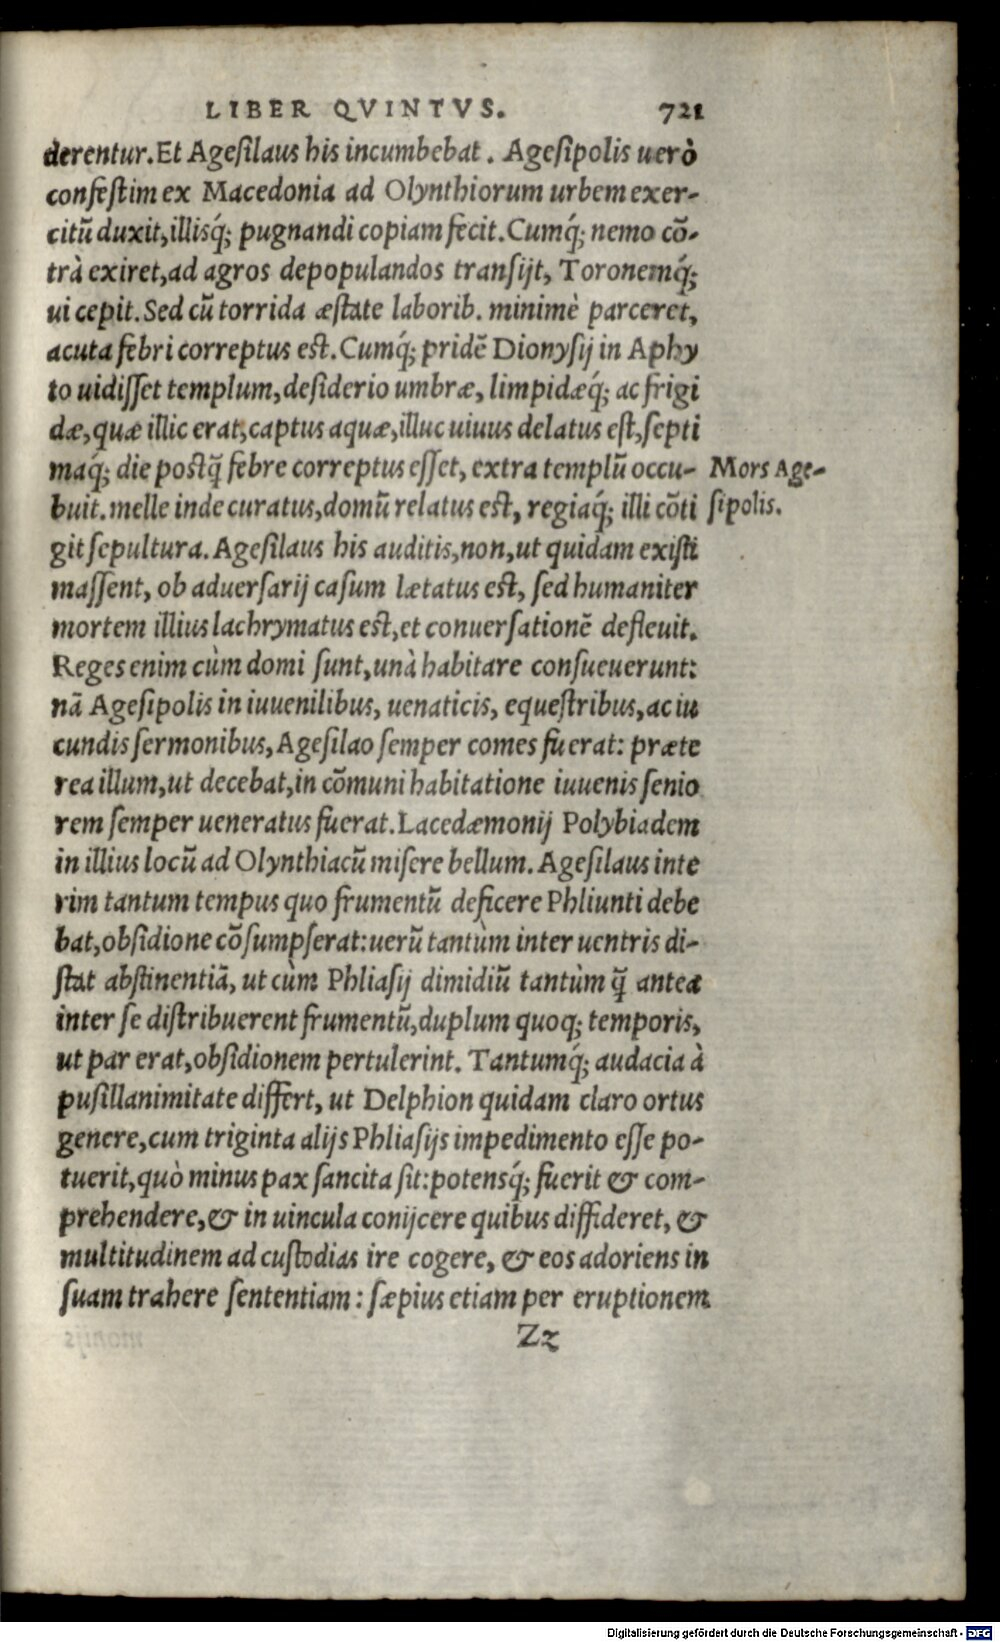 LIBER QVINTVS. 721
derentur. Et Ageſilaus his incumbebat. Ageſipolis uerò
confeſtim ex Macedonia ad Olynthiorum urbem exer-
citũ duxit, illisq́; pugnandi copiam fecit. Cumq́; nemo cõ-
trà exiret, ad agros depopulandos tranſijt, Toronemq́;
ui cepit. Sed cũ torrida æſtate laborib. minimè parceret,
acuta febri correptus eſt. Cumq́; pridẽ Dionyſij in Aphy
to uidiſſet templum, deſiderio umbræ, limpidæq́; ac frigi
dæ, quæ illic erat, captus aquæ, illuc uiuus delatus eſt, ſepti
maq́; die poſtq̃ febre correptus eſſet, extra templũ occu-
Mors Age-
buit. melle inde curatus, domũ relatus eſt, regiaq́; illi cõti
ſipolis.
git ſepultura. Ageſilaus his auditis, non, ut quidam exiſti
maſſent, ob aduerſarij caſum lætatus eſt, ſed humaniter
mortem illius lachrymatus eſt, et conuerſationẽ defleuit.
Reges enim cùm domi ſunt, unà habitare conſueuerunt:
nã Ageſipolis in iuuenilibus, uenaticis, equeſtribus, ac iu
cundis ſermonibus, Ageſilao ſemper comes fuerat: præte
rea illum, ut decebat, in cõmuni habitatione iuuenis ſenio
rem ſemper ueneratus fuerat. Lacedæmonij Polybiadem
in illius locũ ad Olynthiacũ miſere bellum. Ageſilaus inte
rim tantum tempus quo frumentũ deficere Phliunti debe
bat, obſidione cõſumpſerat: uerũ tantùm inter uentris di-
ſtat abſtinentiã, ut cùm Phliaſij dimidiũ tantùm q̃ antea
inter ſe diſtribuerent frumentũ, duplum quoq; temporis,
ut par erat, obſidionem pertulerint. Tantumq́; audacia à
puſillanimitate differt, ut Delphion quidam claro ortus
genere, cum triginta alijs Phliaſijs impedimento eſſe po-
tuerit, quò minus pax ſancita ſit: potensq́; fuerit & com-
prehendere, & in uincula conijcere quibus diffideret, &
multitudinem ad cuſtodias ire cogere, & eos adoriens in
ſuam trahere ſententiam: ſæpius etiam per eruptionem
Zz
Digitalisierung gefördert durch die Deutsche Forschungsgemeinschaft - DFG